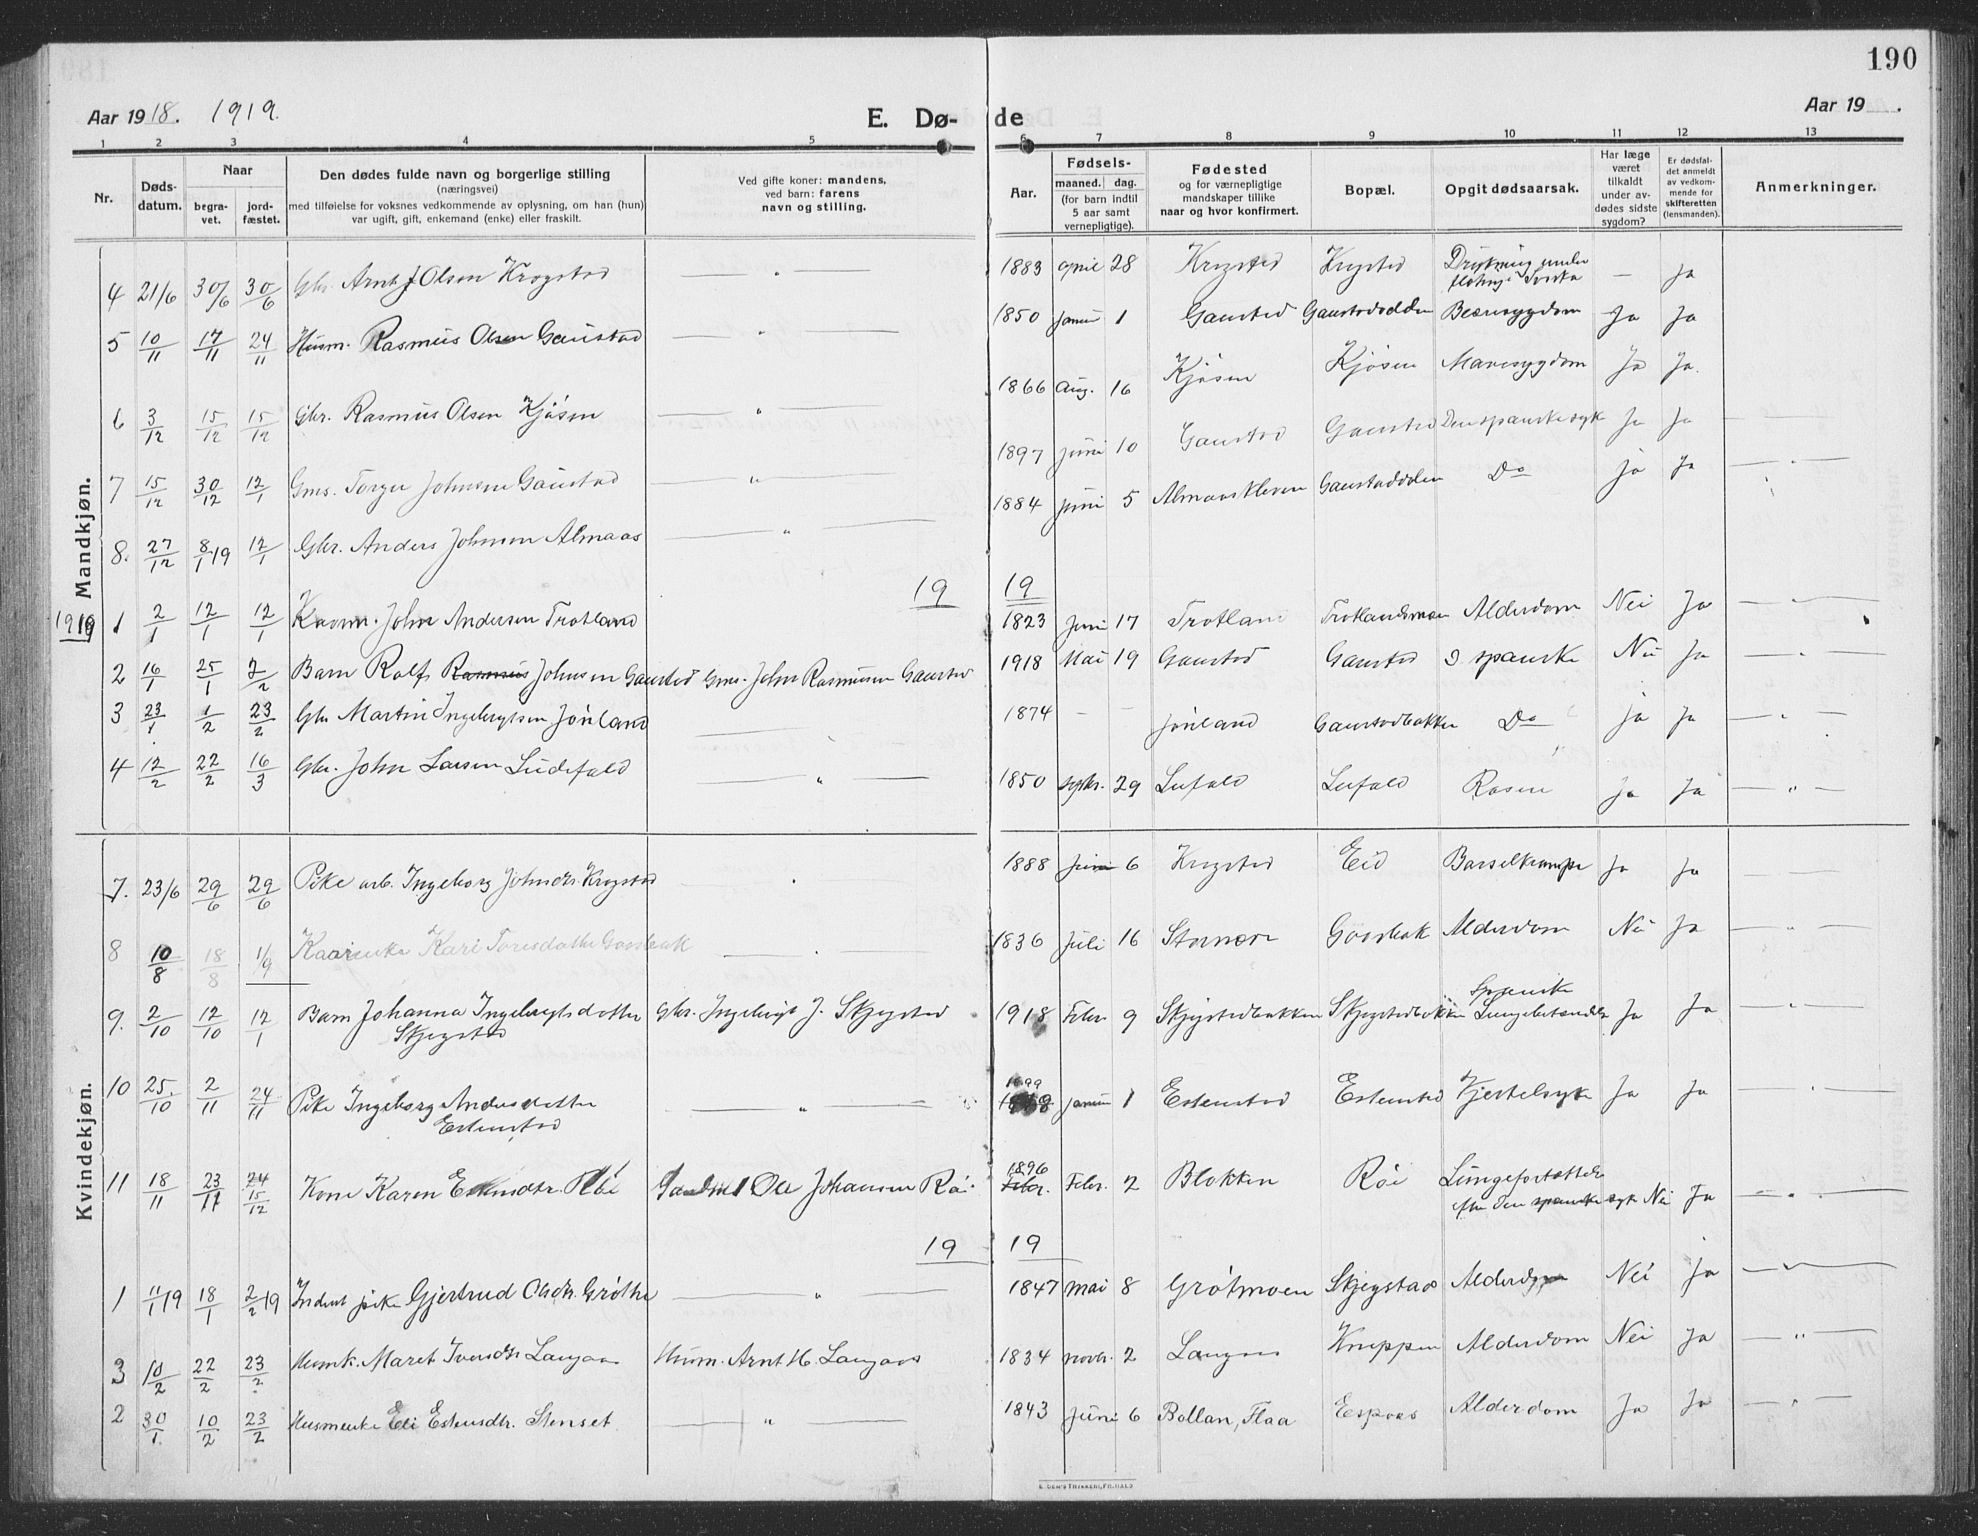 190
Aar 1918. 1919.
E. Dø-
de
Aar 19 .
1 2 3 4 5 6 7 8 9 10 11 12 13
Nr.
Døds-
datum.
Naar
begra-
vet.
jord-
fæstet.
Den dødes fulde navn og borgerlige stilling
(næringsvei)
med tilføielse for voksnes vedkommende av oplysning, om han (hun)
var ugift, gift, enkemand (enke) eller fraskilt.
Ved gifte koner: mandens,
ved barn: farens
navn og stilling.
Aar.
Fødsels-
maaned. dag.
(for barn indtil
5 aar samt
vernepligtige).
Fødested
og for værnepligtige
mandskaper tillike
naar og hvor konfirmert.
Bopæl.
Opgit dødsaarsak.
Har læge
været
tilkaldt
under av-
dødes sidste
sygdom?
Er dødsfal-
det anmeldt
av vedkom-
mende for
skifteretten
(lensmanden).
Anmerkninger.
Mandkjøn.
4 21/6 30/6 30/6 Gbr. Arnt J Olsen Krogstad — " — 1883 April 28 Krogstad Krogstad Drukning under
fløtning i — Ja
5 10/11 17/11 24/11 Husm. Rasmus Olsen Gaustad — " — 1850 Januar 1 Gaustad Gaustadodden Ja Ja
6 3/12 15/12 15/12 Gbr. Rasmus Olsen Kjøsen — " — 1866 Aug. 16 Kjøsen Kjøsen Mavesygdom Ja Ja.
7 15/12 30/12 12/1 Gms. Johnsen Gaustad — " — 1897 Juni 10 Gaustad Gaustad Den spanske syk Ja Ja — " —
8. 27/12 8/1 19 12/1 Gbr. Anders Johnsen Almaas — " — 1884 Juni 5 Almaaskleven Gaustadodden Do Ja Ja — " —
19 19
1919 1 2/1 12/1 12/1 John Andersen Trotland 1823 Juni 17 Trotland Trotlandsmoen Alderdom Nei Ja — " —
2 16/1 25/1 2/2 Barn Rolf Rasmus Johnsen Gaustad Gms. John Rasmusen Gaustad 1918 Mai 19 Gaustad Gaustad D spanske Nei Ja — " —
3 23/1 1/2 23/2 Gbr Martin Ingebrigtsen Jønland — " — 1874 - - Jønland Gaustadbakken Do Ja Ja — " —
4 12/2 22/2 16/3 Gbr. John Larsen Ludefald — " — 1850 Septbr. 29 Lufald Lufald Rosen Ja Ja — " —
Kvindekjøn.
7. 23/6 29/6 29/6 Pike arb. Ingeborg Johnsdtr. Krogstad — " — 1888 Juni 6 Krogstad Eid Barselkrampe Ja Ja — " —
8 10/8 18/8 1/9 Kaarenke Kari Toresdatter Gaasbak — " — 1836 Juli 16 Gaasbak Alderdom Nei Ja — " —
9. 2/10 12/10 12/1 Barn Johanna Ingebrigtsdatter
Skjegstad Gbr. Ingebrigt J. Skjegstad 1918 Febr. 9 Skjegstadbakken Skjegstadbakken Spansk
Lungebetændelse Ja Ja — " —
10 25/10 2/11 24/11 Pike Ingeborg Andersdatter
Estenstad — " — 1899
Januar 1 Estenstad Estenstad Hjertesyke Ja Ja — " —
11 18/11 23/11 24
15/12 Kone Karen Estensdtr. Røe Ole Johansen Røi 1896
Febr. Febr. 2 Blokken Røi
efter den spanske syk Nei Ja — " —
19 19
1 11/1 19 18/1 2/2 19 Inderst pike Gjertrud Olsdtr. Grøthe — " — 1847 Mai 8 Grøtmoen Skjegstad Alderdom Nei Ja — " —
3 10/2 22/2 23/2 Husmk. Maret Iversdtr Langaas Husm. Arnt H. Langaas 1834 Novbr. 2 Langaas Knippen Alderdom Nei Ja — " —
2 30/1. 10/2 23/2 Husmenke Eli Estensdtr. Stenset — " — 1843 Juni 6 Bollan, Flaa Espaas Alderdom Ja Ja — " —